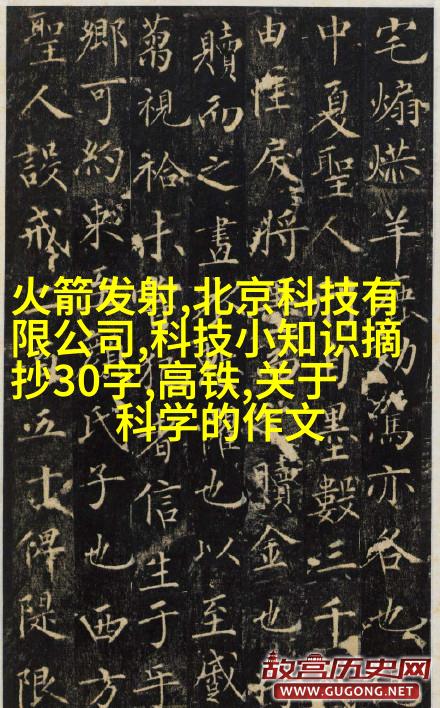 火箭发射,北京科技有
限公司,科技小知识摘
抄30字,高铁,关于
科学的作文
宅煽羊亦各也
中夏聖人墨數三千
由性戾將贖金也
贖而之畫也以至戚
視者信生于
鄉可約束氏子也西方
聖人設戒五士俾隄限
故宫历史网
WWW.GUGONG.NET